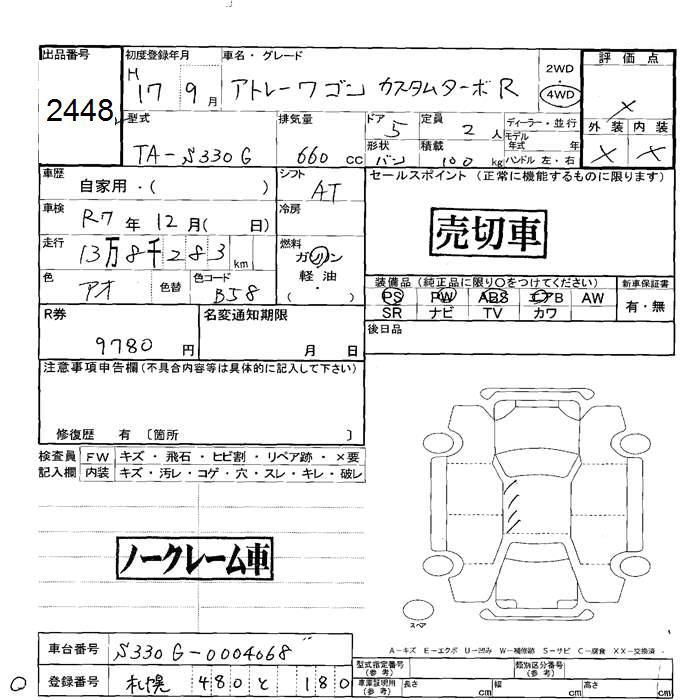 出品番号 初度登録年月 車名・グレード 評価点
2448 H 17 9月 アトレーワゴン カスタムターボR 2WD 4WD ×
型式 排気量 ドア 定員 ディーラー・並行 外装 内装
TA-S330G 660cc 5 2人 モデル年式 年 × ×
形状 積載 ハンドル 左・右
バン 100kg
車歴 シフト セールスポイント(正常に機能するものに限ります)
自家用・( ) AT
車検 R7年12月( 日) 冷房 売切車
走行 燃料
13万8千283km ガソリン
軽・油
( )
色 アオ 色替 色コード B58
装備品(純正品に限り○をつけてください) 新車保証書
PS PW ABS エアB AW 有・無
SR ナビ TV カワ
R券 名変通知期限 後日品
9780円 月 日
注意事項申告欄(不具合内容等は具体的に記入して下さい)
修復歴 有 〔箇所 〕
検査員 FW キズ・飛石・ヒビ割・リペア跡・×要
記入欄 内装 キズ・汚レ・コゲ・穴・スレ・キレ・破レ
ノークレーム車
スペア
A-キズ E-エクボ U-凹み W-補修跡 S-サビ C-腐食 XX-交換済
車台番号 S330G-0004068
登録番号 札幌 480 と 180
型式指定番号(参考) 類別区分番号(参考)
車庫証明用(参考) 長さ cm 幅 cm 高さ cm